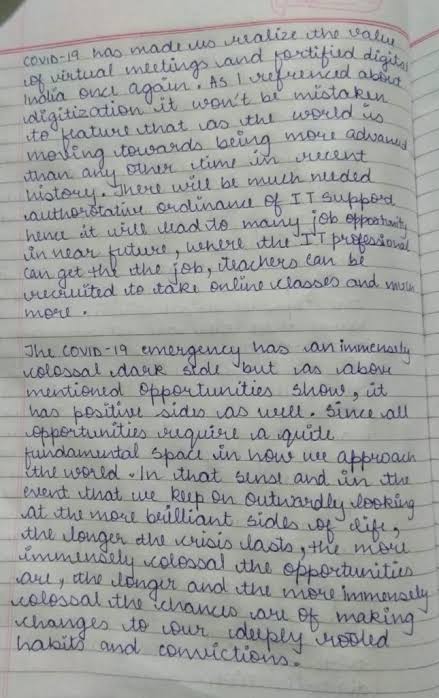 COVID-19 has made us realize the value
of virtual meetings and fortified digital
India once again. As I refrenced about
digitization it won't be mistaken
to feature that as the world is
moving towards being more advanced
than any other time in recent
history. There will be much needed
authorotative ordinance of IT support
hence it will lead to many job opportunity
in near future, where the IT professional
can get the the job, teachers can be
recruited to take online classes and much
more.
The COVID-19 emergency has an immensely
colossal dark side but as above
mentioned opportunities show, it
has positive sides as well. Since all
opportunities require a quite
fundamental space in how we approach
the world. In that sense and in the
event that we keep on outwardly looking
at the more brilliant sides of life,
the longer the crisis lasts, the more
immensely colossal the opportunities
are, the longer and the more immensely
colossal the chances are of making
changes to our deeply rooted
habits and convictions.